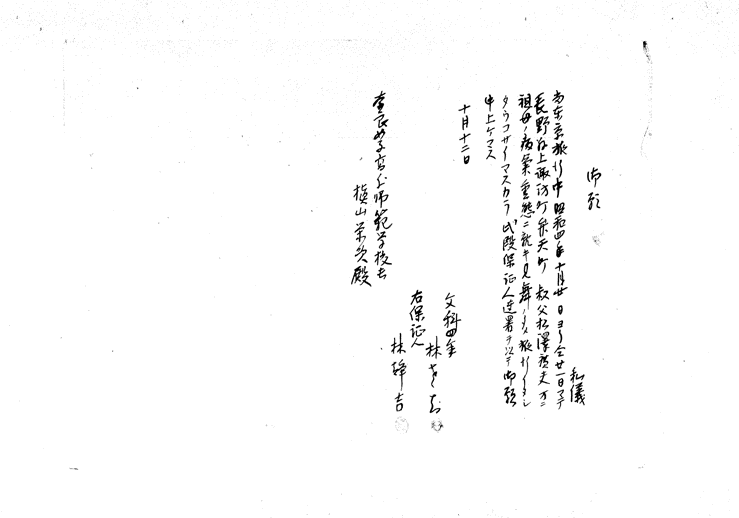 御願
私儀
当東京旅行中昭和四年十月廿日ヨリ仝廿一日マデ
長野県上諏訪町弁天町 叔父松澤 夫方ニ
祖母ノ病気重態ニ就キ見舞ノタメ旅行イタシ
タウゴザイマスカラ此段保証人連署ヲ以テ御願
申上ゲマス
十月十二日
奈良女子高等師範学校長
槇山栄次殿
文科四年
林
右保証人
林 吉